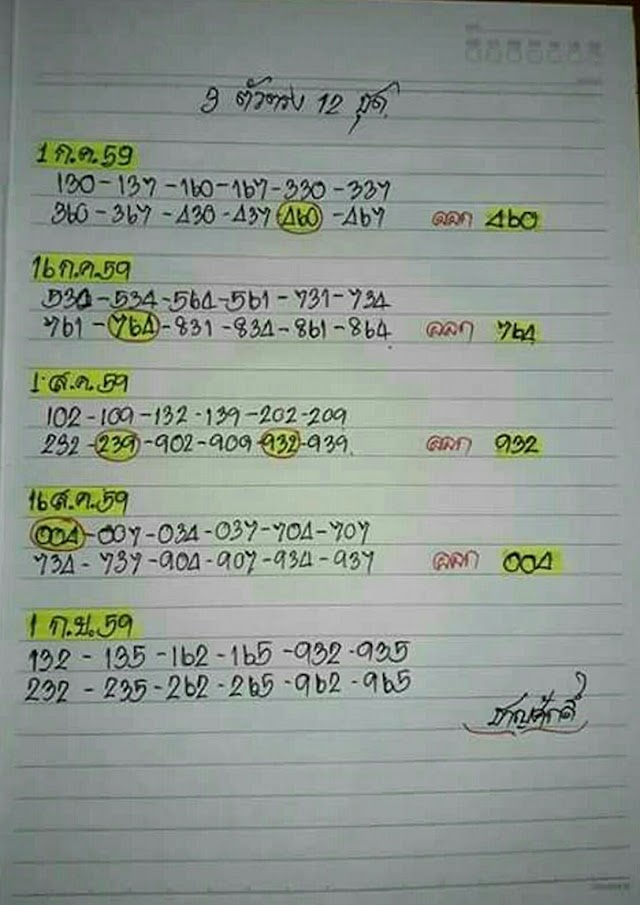 3 ตัวตรง 12 ชุด
1 ก.ค.59
130-137-160-167-330-337
360-367-430-437-460-467 ออก 460
16 ก.ค.59
531-534-564-561-731-734
761-764-831-834-861-864 ออก 764
1 ส.ค.59
102-109-132-139-202-209
232-239-902-909-932-939 ออก 932
16 ส.ค.59
004-007-034-037-704-707
734-737-904-907-934-937 ออก 004
1 ก.ย.59
132-135-162-165-932-935
232-235-262-265-962-965
ชาญศักดิ์